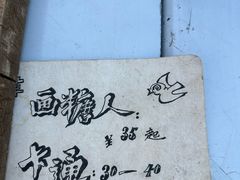 画糖人:
¥35起
卡通:30—40